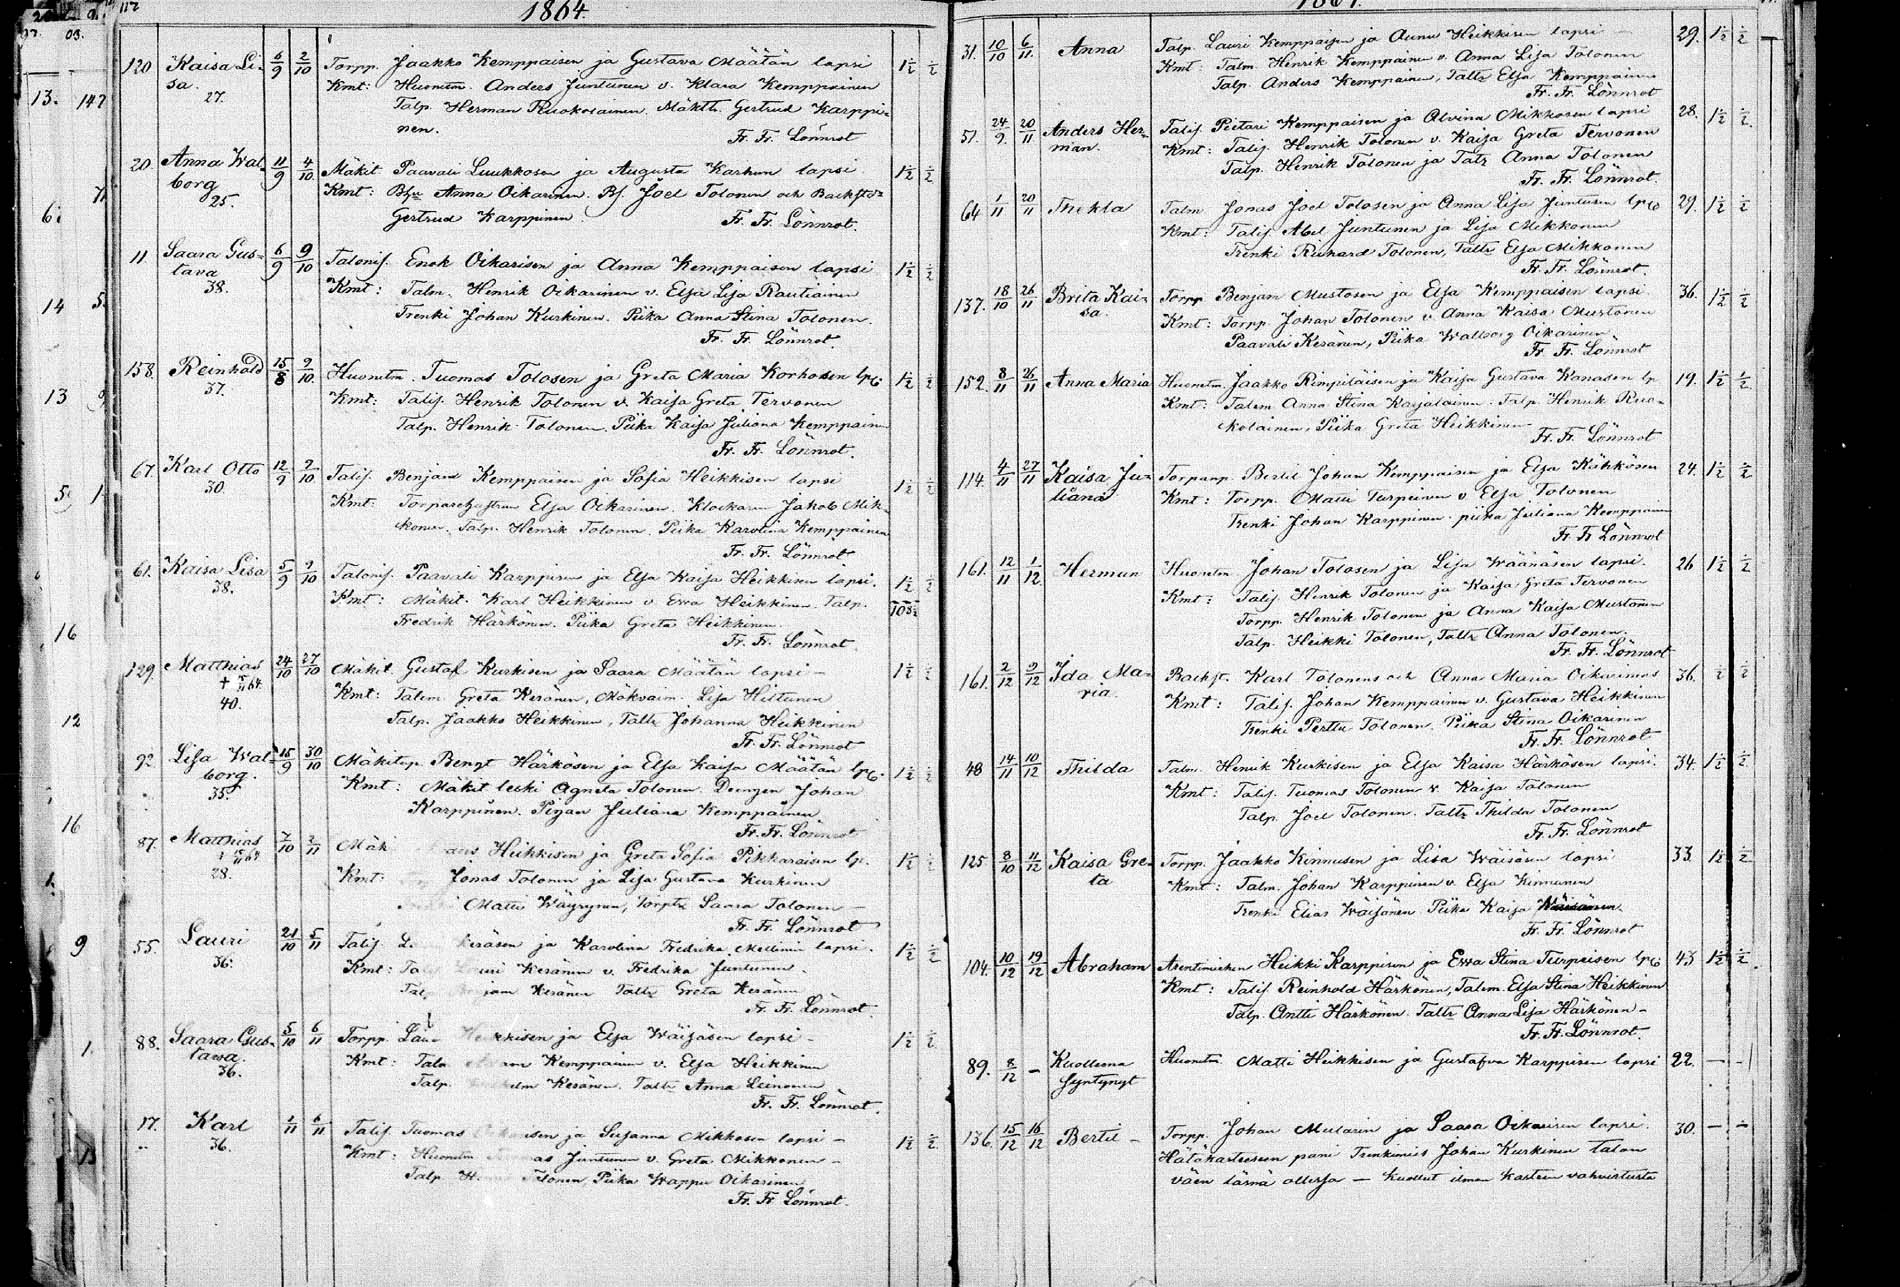 112 1864.
120 Kaisa Li- 6/9 2/10 Torpp. Jaakko Kemppaisen ja Gustava Määtän lapsi 1½ ½
sa. Kmt: Huonetm. Anders Juntunen v. Klara Kemppainen
27. Talp. Herman Ruokolainen. Mäkttr. Gertrud Karppi-
nen. Fr. Fr. Lönnrot
20. Anna Wal- 11/9 4/10 Mäkit. Paavali Luukkosen ja Augusta Karhun lapsi 1½ ½
borg Kmt: Bfr Anna Oikarinen. Bf. Joel Tolonen och Backst
25. Gertrud Karppinen Fr. Fr. Lönnrot.
11 Saara Gus- 6/9 9/10 Talonis. Enok Oikarisen ja Anna Kemppaisen lapsi 1½ ½
tava Kmt: Talm. Henrik Oikarinen v. Elsa Lisa Rautiainen
38. Trenki Johan Kurkinen. Piika Anna Stina Tolonen.
Fr. Fr. Lönnrot.
158. Reinhold 15/8 9/10 Huonetm. Tuomas Tolosen ja Greta Maria Korhosen lps 1½ ½
37. Kmt: Talis. Henrik Tolonen v. Kaisa Greta Tervonen
Talp. Henrik Tolonen. Piika Kaisa Juliana Kemppainen
Fr. Fr. Lönnrot.
67. Karl Otto 12/9 9/10 Talis. Benjam Kemppaisen ja Sofia Heikkisen lapsi 1½ ½
30. Kmt: Torparehustrun Elsa Oikarinen. Klockaren Jakob Mik-
konen. Talp. Henrik Tolonen. Piika Karolina Kemppainen
Fr. Fr. Lönnrot
61. Kaisa Lisa 5/9 9/10 Talonis. Paavali Karppisen ja Elsa Kaisa Heikkisen lapsi. 1½ ½
38. Kmt: Mäkit. Karl Heikkinen v. Ewa Heikkinen. Talp.
Fredrik Härkönen. Piika Greta Heikkinen.
Fr. Fr. Lönnrot.
129. Matthias 24/10 27/10 Mäkit. Gustaf Kurkisen ja Saara Määtän lapsi – 1½ ½
40. Kmt: Talem. Greta Keränen, Mäkvaim. Lisa Hiltunen
Talp. Jaakko Heikkinen, Talttr Johanna Heikkinen
Fr. Fr. Lönnrot
92 Lisa Wal- 15/9 30/10 Mäkitsp. Bengt Härkösen ja Elsa Kaisa Määtän lps. 1½ ½
borg. Kmt: Mäkit leski Agneta Tolonen. Drengen Johan
35. Karppinen. Pigan Juliana Kemppainen.
Fr. Fr. Lönnrot
87. Matthias 7/10 2/11 Mäk Heikkisen ja Greta Sofia Pikkaraisen lp. 1½ ½
28. Kmt: Jonas Tolonen ja Lisa Gustava Kurkinen
Matti Wäyrynen, Torpttr Saara Tolonen –
Fr. Fr. Lönnrot
55. Lauri 21/10 5/11 Talis. Keräsen ja Karolina Fredrika lapsi. 1½ ½
36. Kmt: Lauri Keränen v. Fredrika Juntunen.
Keränen Talttr Greta Keränen
Fr. Fr. Lönnrot.
88. Saara Gus- 5/10 6/11 Torpp. Heikkisen ja Elsa Wäisäsen lapsi – 1½ ½
tawa. Kmt: Talm Kemppainen v. Elsa Heikkinen
36. Talp. Keränen. Talttr Anna Leinonen
Fr. Fr. Lönnrot.
17. Karl 1/11 6/11 Talis. Tuomas Oikarisen ja Susanna Mikkosen lapsi – 1½ ½
36. Kmt: Huonetm Juntunen v. Greta Mikkonen –
Talp. Tolonen, Piika Wappu Oikarinen
Fr. Fr. Lönnrot.
31. 10/10 6/11 Anna Talp. Lauri Kemppaisen ja Anna Heikkisen lapsi – 29. 1½ ½
Kmt: Talm. Henrik Kemppainen v. Anna Lisa Tolonen
Talp. Anders Kemppainen, Talttr Elsa Kemppainen
Fr. Fr. Lönnrot
51. 24/9 20/11 Anders Her- Talis. Pietari Kemppaisen ja Alvina Mikkosen lapsi 28. 1½ ½
man. Kmt: Talis. Henrik Tolonen v. Kaisa Greta Tervonen
Talp. Henrik Tolonen ja Tattr Anna Tolonen
Fr. Fr. Lönnrot.
64. 1/11 20/11 Thekla Talm. Jonas Joel Tolosen ja Anna Lisa Juntusen lps 29. 1½ ½
Kmt: Talis. Abel Juntunen ja Lisa Mikkonen
Trenki Rickard Tolonen, Talttr Elsa Mikkonen
Fr. Fr. Lönnrot.
137. 18/10 26/11 Brita Kai- Torpp. Benjam Mustosen ja Elsa Kemppaisen lapsi. 36. 1½ ½
sa. Kmt: Torpp. Johan Tolonen v. Anna Kaisa Mustonen
Paavali Keränen, Piika Walborg Oikarinen.
Fr. Fr. Lönnrot
152. 8/11 26/11 Anna Maria Huonetm. Jaakko Rimpiläisen ja Kaisa Gustava Kanasen lp 19. 1½ ½
Kmt: Talem. Anna Stina Karjalainen. Talp. Henrik Ruo-
kolainen, Piika Greta Heikkinen
Fr. Fr. Lönnrot
114. 4/11 27/11 Kaisa Ju- Torpanp. Bertil Johan Kemppaisen ja Elsa Kähkösen 24. 1½ ½
liana Kmt: Torpp. Matti Turpeinen v. Elsa Tolonen
Trenki Johan Karppinen. piika Juliana Kemppainen
Fr. Fr. Lönnrot
161. 12/11 1/12 Herman Huonetm. Johan Tolosen ja Lisa Wäänäsen lapsi. 26 1½ ½
Kmt: Talis. Henrik Tolonen ja Kaisa Greta Tervonen
Torpp. Henrik Tolonen ja Anna Kaisa Mustonen
Talp. Heikki Tolonen, Talttr Anna Tolonen.
Fr. Fr. Lönnrot
161. 2/12 9/12 Ida Ma- Backst. Karl Tolonens och Anna Maria Oikarinens 36. ½ ½
ria. Kmt: Talis. Johan Kemppainen v. Gustava Heikkinen
Trenki Perttu Tolonen. Piika Stina Oikarinen
Fr. Fr. Lönnrot
48 14/11 10/12 Thilda Talm. Henrik Kurkisen ja Elsa Kaisa Härkösen lapsi. 34. 1½ ½
Kmt: Talis. Tuomas Tolonen v. Kaisa Tolonen
Talp. Joel Tolonen. Talttr Thilda Tolonen
Fr. Fr. Lönnrot
125 8/10 11/12 Kaisa Gre- Torpp. Jaakko Kinnusen ja Lisa Wäisäsen lapsi 33. 1½ ½
ta Kmt: Talm. Johan Karppinen v. Elsa Kinnunen
Trenki Elias Wäisänen Piika Kaisa Wäisänen.
Fr. Fr. Lönnrot
104. 10/12 19/12 Abraham Arentimiehen Heikki Karppisen ja Ewa Stina Turpeisen lps 43 1½ ½
Kmt: Talis Reinhold Härkönen, Talem. Elsa Stina Heikkinen
Talp. Antti Härkönen. Talttr Anna Lisa Härkönen –
Fr. Fr. Lönnrot.
89. 8/12 – Kuollena Huonetm Matti Heikkisen ja Gustafva Karppisen lapsi 22. – –
syntynyt
136. 15/12 16/12 Bertil – Torpp. Johan Mularin ja Saara Oikarisen lapsi. 30. – –
Hätäkasteeseen pani Trenkimies Johan Kurkinen talon
väen läsnä ollessa – Kuollut ilman kasteen vahvistusta